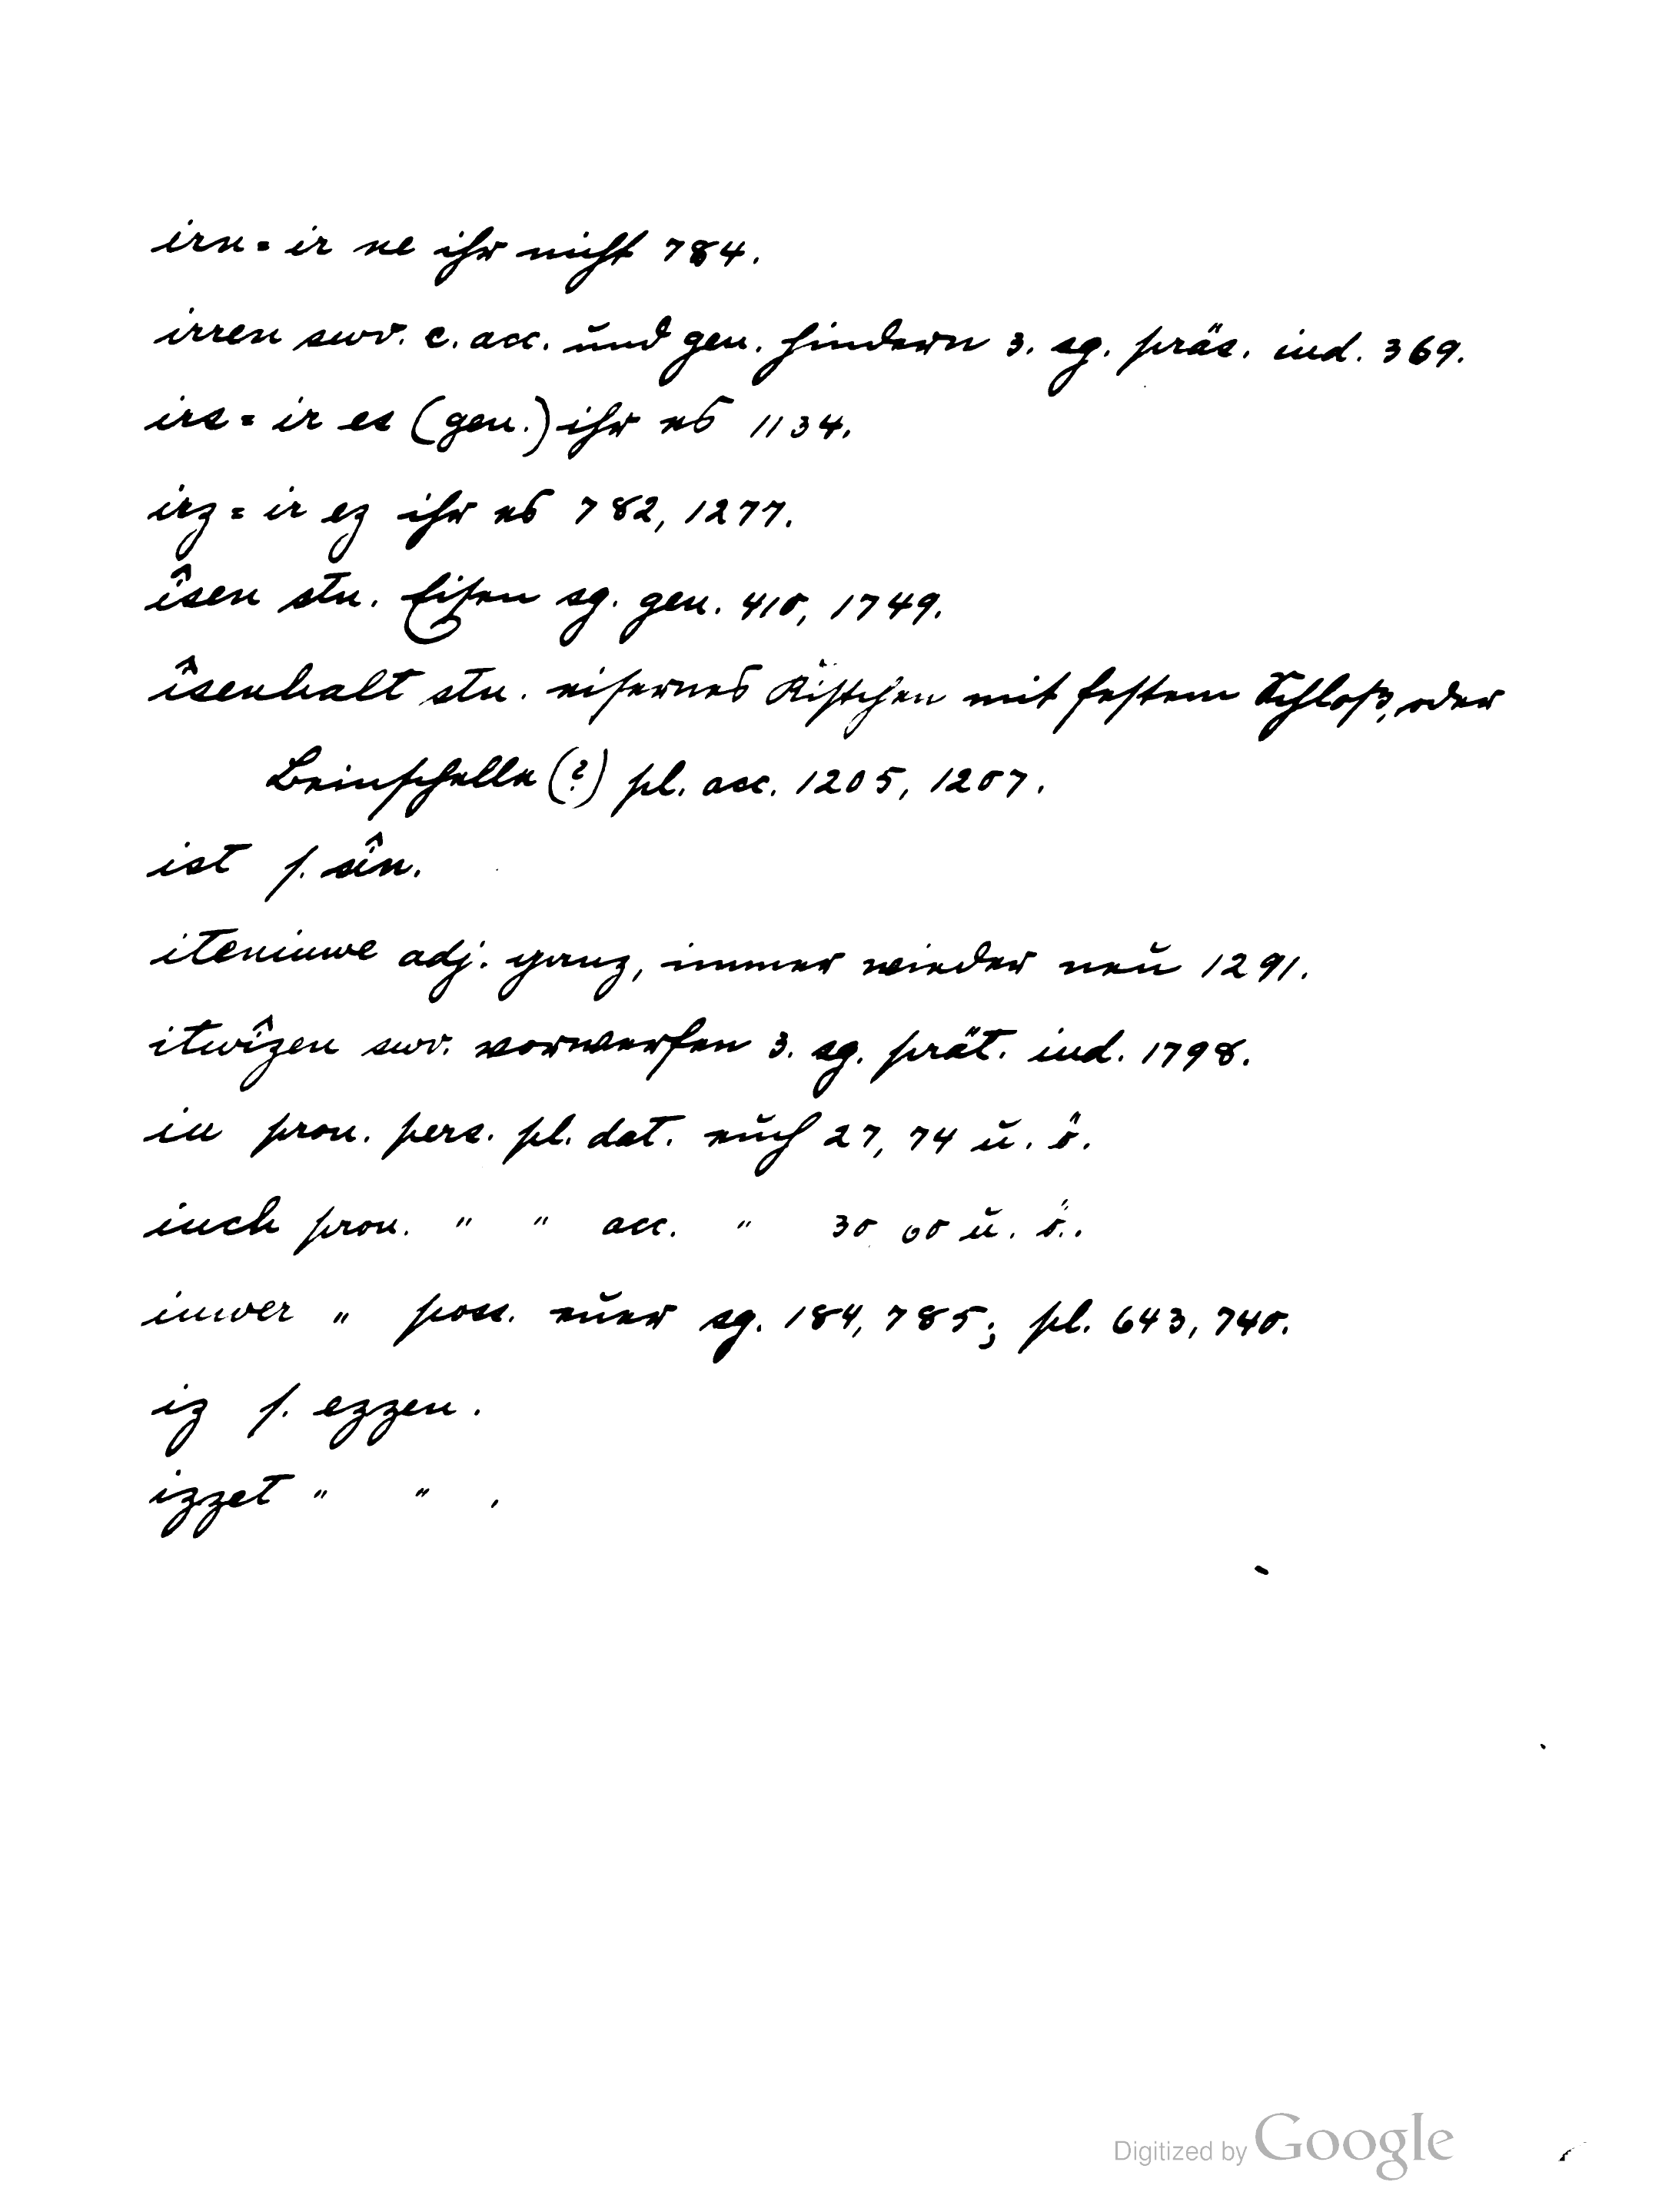 irn = ir ne ihr nicht 784.
irren swv. c. acc. und gen. hindern 3. sg. präs. ind. 369.
irs = ir es (gen.) ihr es 1134.
irz = ir ez ihr es 782, 1277.
îsen stn. Eisen sg. gen. 410, 1749.
îsenhalt stn. eisernes Kistchen mit festem Schloß, oder
Beinschelle (?) pl. acc. 1205, 1207.
ist s. sîn.
iteniuwe adj. ganz, immer wieder neu 1291.
itwîzen swv. vorwerfen 3. sg. prät. ind. 1798.
iu pron. pers. pl. dat. euch 27, 74 u. ö.
iuch pron. " " acc. " 30 60 u. ö.
iuwer " poss. euer sg. 184, 785; pl. 643, 740.
iz s. ezzen.
izzet " " .
Digitized by Google